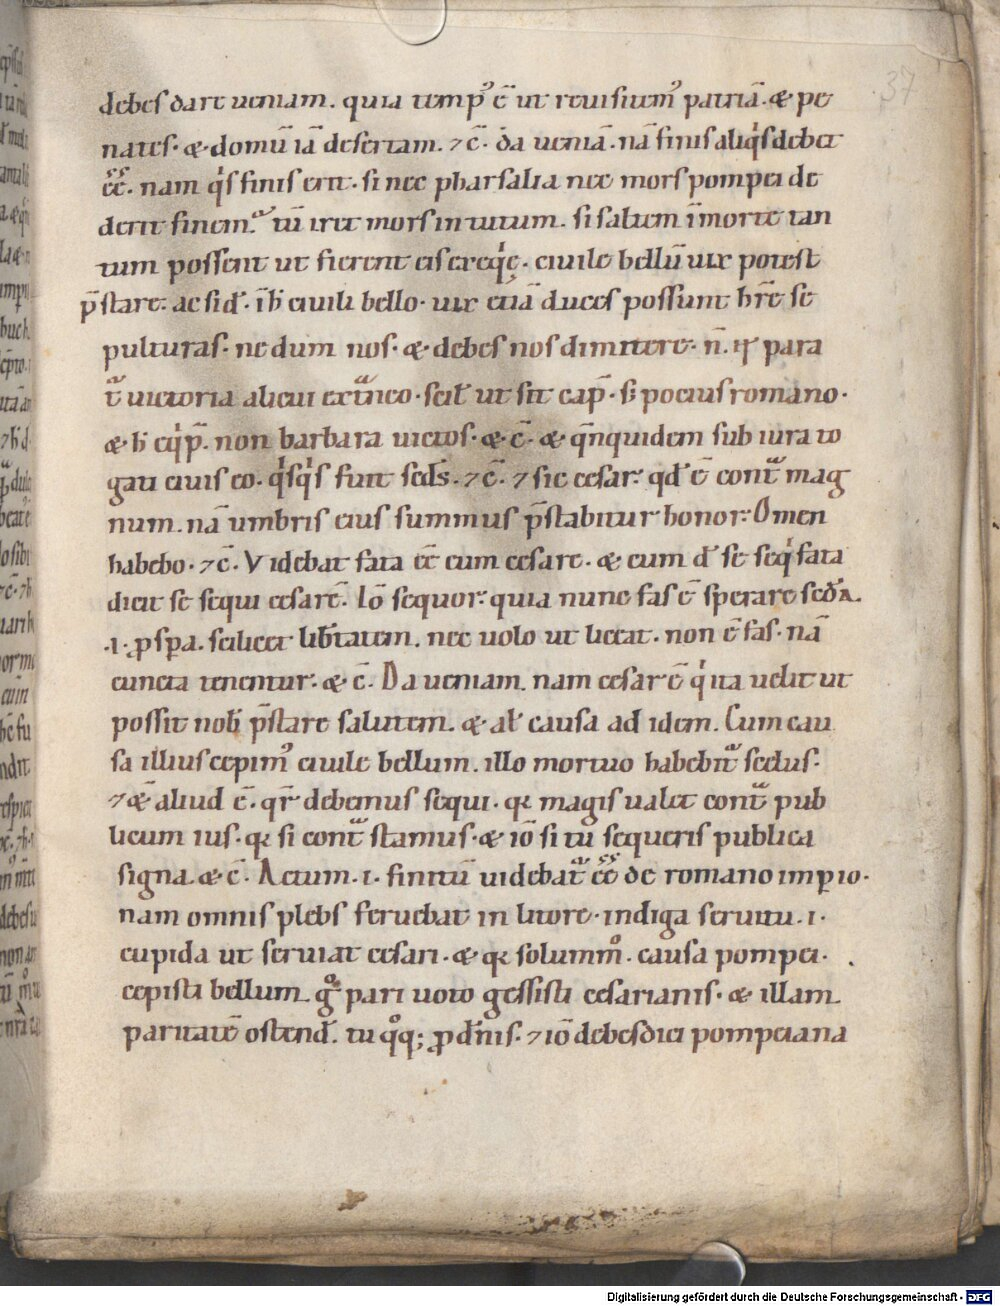 37
debes dare ueniam. quia temp᷒ ē ut reuisiem᷒ patriā. & pe
nates. & domū iā desertam. ⁊ c̄. da ueniā. nā finis aliqͥs debet
ēē. nam qͥs finis erit. si nec pharsalia nec mors pompei de
derit finem. tū iret mors in tutum. si saltem ī morte tan
tum possent ut fierent eis exeq̇ę. ciuile bellū uix potest
p̄stare. ac si d̄. ī h̄ ciuili bello. uix etiā duces possunt hr̄e se
pulturas. nedum nos. & debes nos dimittere. n̄. para
uictoria alicui ext̄neo. scił ut sit cap̄. s; pocius romano.
& h̄ eq̇p̄. non barbara uictos. & c̄. & qn̄quidem sub iura to
gati ciuis eo. qͥsqͥs funt sed̄s. ⁊ c̄. ⁊ sic cesar. qd̄ ē cont̄ mag
num. nā umbris eius summus p̄stabitur honor. Omen
habebo. ⁊ c̄. Videbat fata ēē cum cesare. & cum d̄ se seq̇ fata
dicit se sequi cesarē. Iō sequor. quia nunc fas ē sperare secd̄a.
.i. ꝓspa. scilicet lib̄tatem. nec uolo ut liceat. non ē fas. nā
cuncta tenentur. & c̄. Da ueniam. nam cesar ē q̇ ita uelit ut
possit nob̄ p̄stare salutem. & ał causa ad idem. Cum cau
sa illius cepim᷒ ciuile bellum. illo mortuo habebit᷒ scelus.
⁊ & aliud ē. qr̄ debemus sequi. qꝛ magis ualet cont̄ pub
licum ius. qꝛ si cont̄ stamus. & iō si tu sequeris publica
signa. & c̄. Actum .i. finitū uidebat᷒ ēē de romano imꝑio.
nam omnis plebs feruebat in litore. indiga seruiti .i.
cupida ut seruiat cesari. & qꝛ solumm̊. causa pompei.
cepisti bellum. g̊ pari uoto gessisti cesarianis. & illam
paritatē ostend̄. tu qͦq; ꝓ d̄nis. ⁊ iō debes dici pompeiana
Digitalisierung gefördert durch die Deutsche Forschungsgemeinschaft - DFG